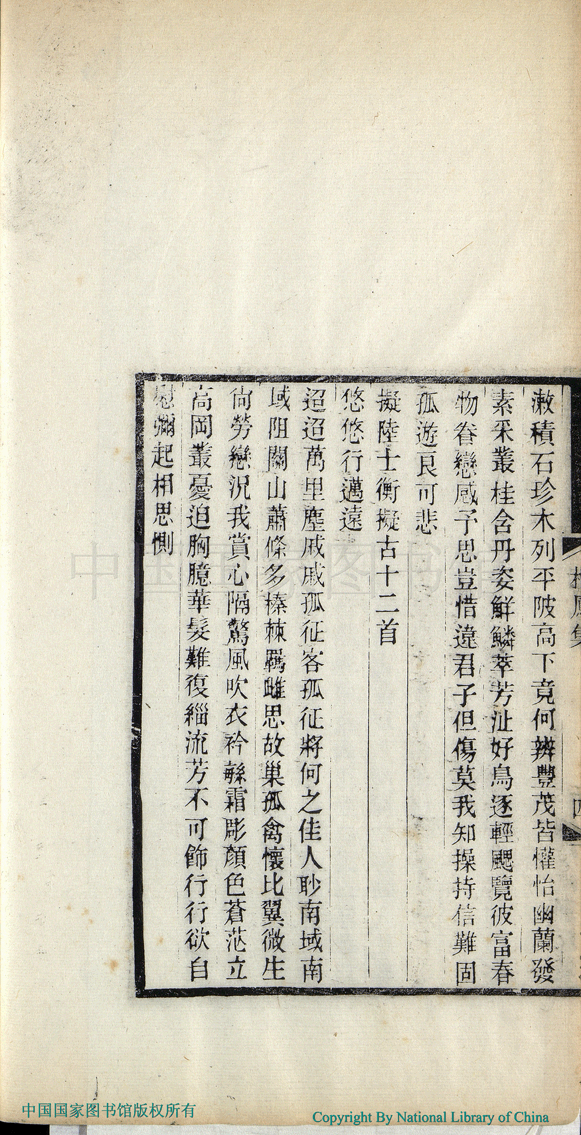 漱積石珍木列平陂高下竟何辨豐茂皆懽怡幽蘭發
素采叢桂含丹姿鮮鱗萃芳沚好鳥逐輕颸覽彼富春
物眷戀感予思豈惜遠君子但傷莫我知操持信難固
孤遊良可悲
擬陸士衡擬古十二首
悠悠行邁遠
迢迢萬里塵戚戚孤征客孤征將何之佳人眇南域南
域阻關山蕭條多榛棘羇雌思故巢孤禽懷比翼微生
尙勞戀況我賞心隔驚風吹衣衿緐霜彫顏色蒼茫立
高岡叢憂迫胸臆華髮難復緇流芳不可飾行行欲自
慰彌起相思惻
四
中国国家图书馆
中国国家图书馆版权所有
Copyright By National Library of China